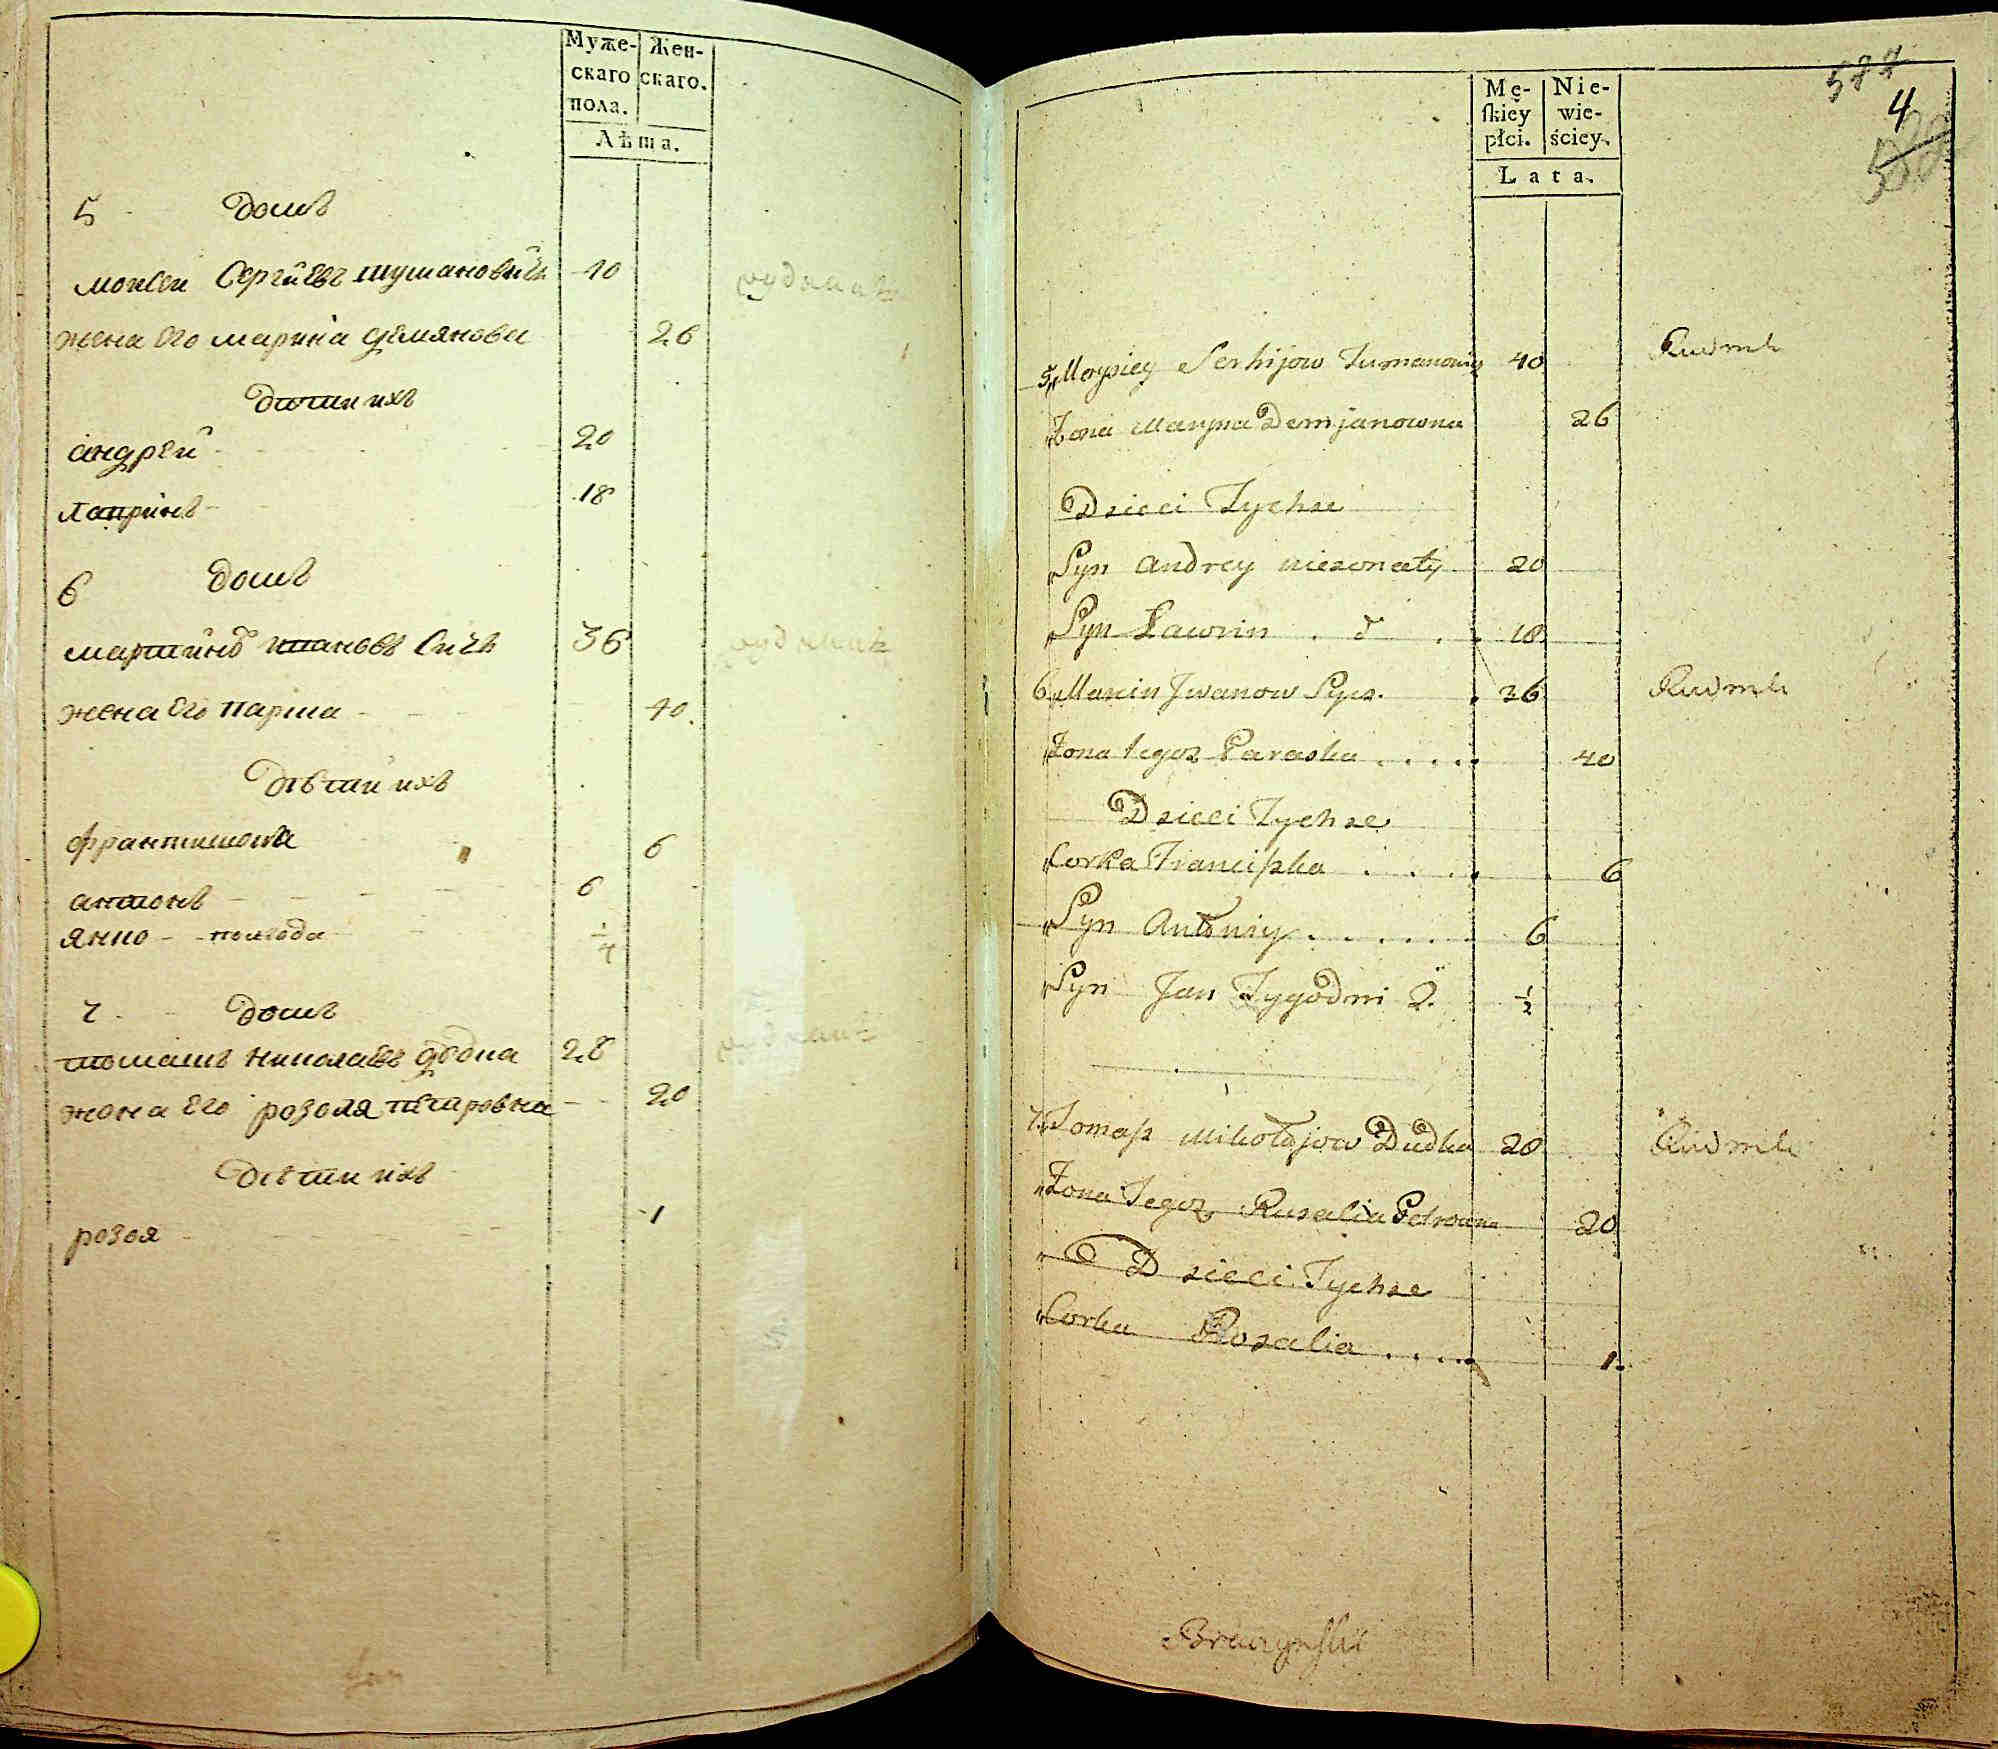 Муже- Жен-
скаго скаго.
пола.
Лѣта.
5 домъ
моисеи Сергіевъ тумановичъ 40
жена его марина демянова 26
дѣти ихъ
андрей 20
лавринъ 18
6 домъ
мартинъ ивановъ Сичъ 36
жена его параска 40
дѣтии ихъ
францишка 6
антонъ 6
янко полгода
7 домъ
томашъ николаевъ дудка 28
жена его розоля петровна 20
дѣтии ихъ
розоя 1
587
4
Mę- Nie-
skiey wie-
płci. ściey.
Lata.
5 Moysiey Serhijow Tumanowicz 40 Rudnik
Żona Maryna Demjanowna 26
Dzieci Tychże
Syn Andrey nieżonaty 20
Syn Ławrin d 18
6 Marcin Jwanow Sycz. 36 Rudnik
Żona tegoż Paraska 40
Dzieci Tychże
Corka Franciszka 6
Syn Antoniy 6
Syn Jan Tygodni 2. 1/2
7. Tomasz Mikołajow Dudka 28 Rudnik
Żona Tegoż Rusalia Petrowna 20
Dzieci Tychże
Corka Rosalia 1.